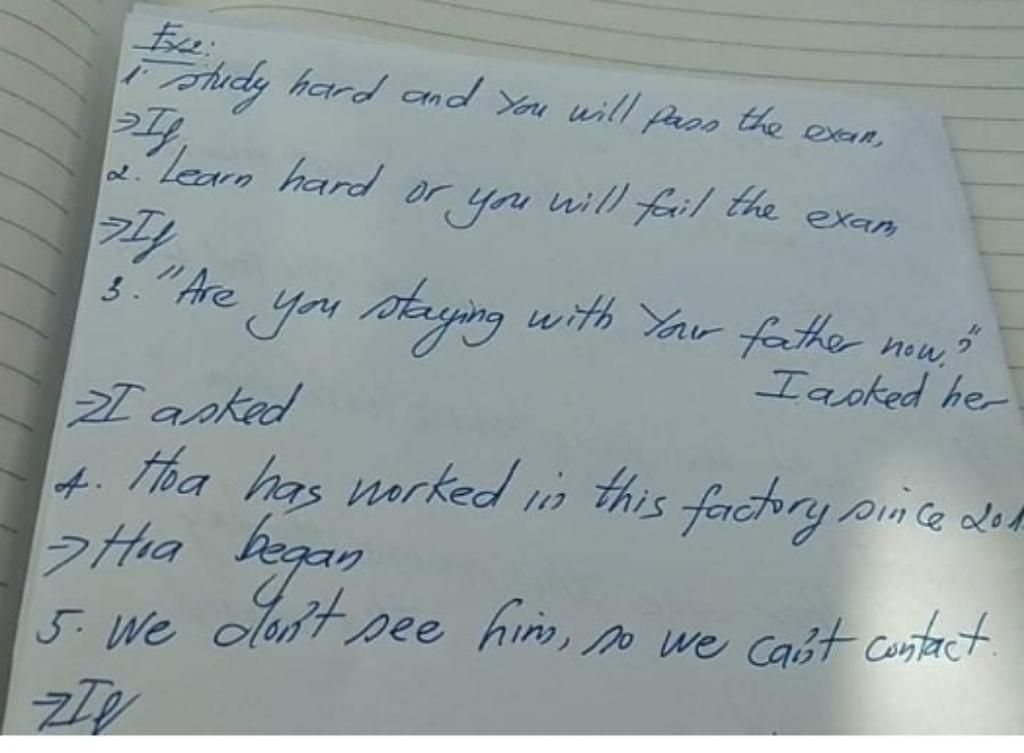 Ex2:
1. Study hard and You will pass the exam,
⇒If
2. Learn hard or you will fail the exam
⇒If
3. "Are you staying with Your father now?"
I asked her
⇒I asked
4. Hoa has worked in this factory since
⇒Hoa began
5. We don't see him, so we can't contact.
⇒If